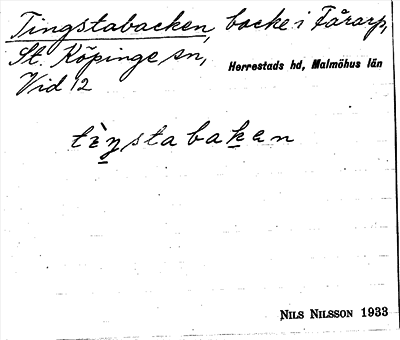 Tingstabacken, backe i Fårarp,
St. Köpinge sn,
Herrestads hd, Malmöhus län
Vid 12
tè̱ŋstabaḵen
NILS NILSSON 1933